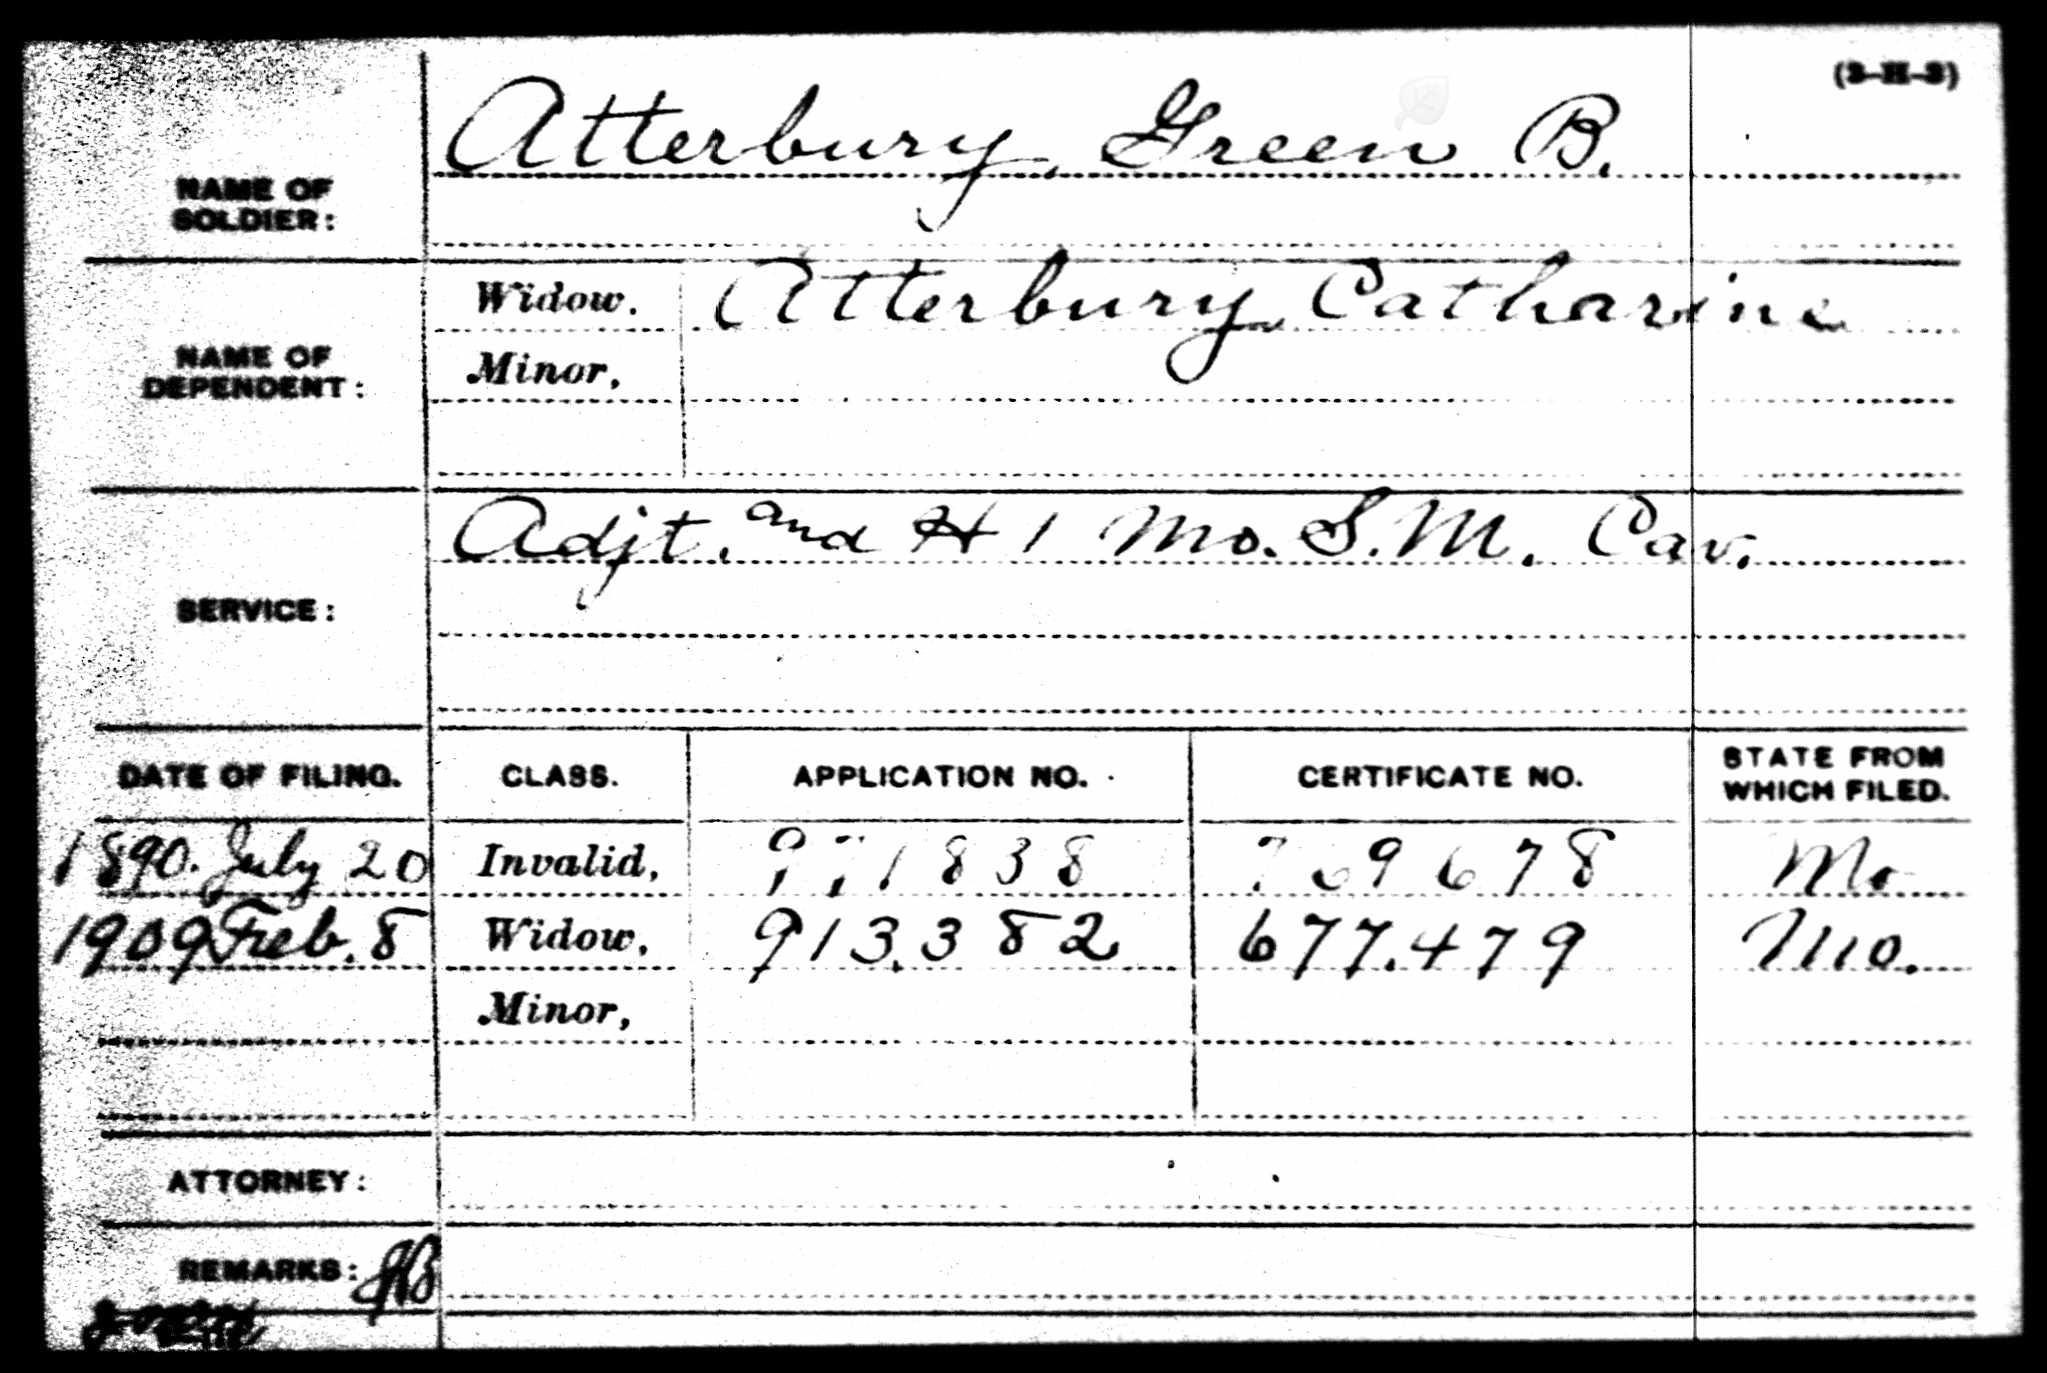 (3-H-3)
Atterbury, Green B.
NAME OF
SOLDIER:
Widow. Atterbury Catharine
Minor,
NAME OF
DEPENDENT:
Adjt. and H 1 Mo. S. M. Cav.
SERVICE:
DATE OF FILING. CLASS. APPLICATION NO. CERTIFICATE NO. STATE FROM
WHICH FILED.
1890. July 20 Invalid, 971838 769678 Mo
1909 Feb. 8 Widow, 913.382 677.479 Mo.
Minor,
ATTORNEY:
REMARKS: